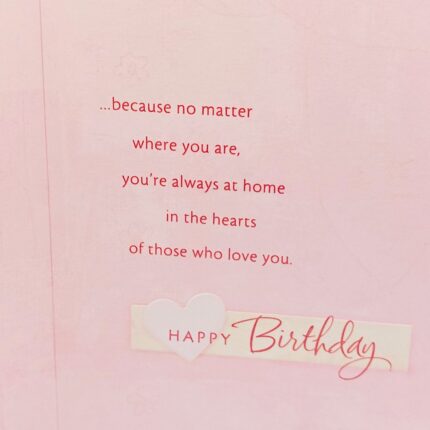 ...because no matter
where you are,
you're always at home
in the hearts
of those who love you.
HAPPY Birthday